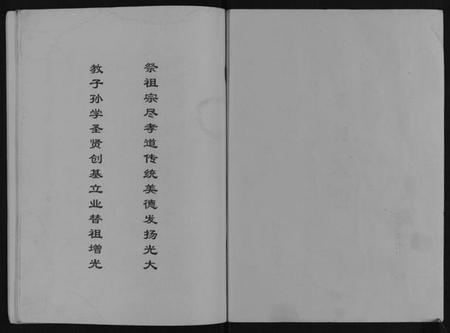 祭祖宗尽孝道传统美德发扬光大
教子孙学圣贤创基立业替祖增光